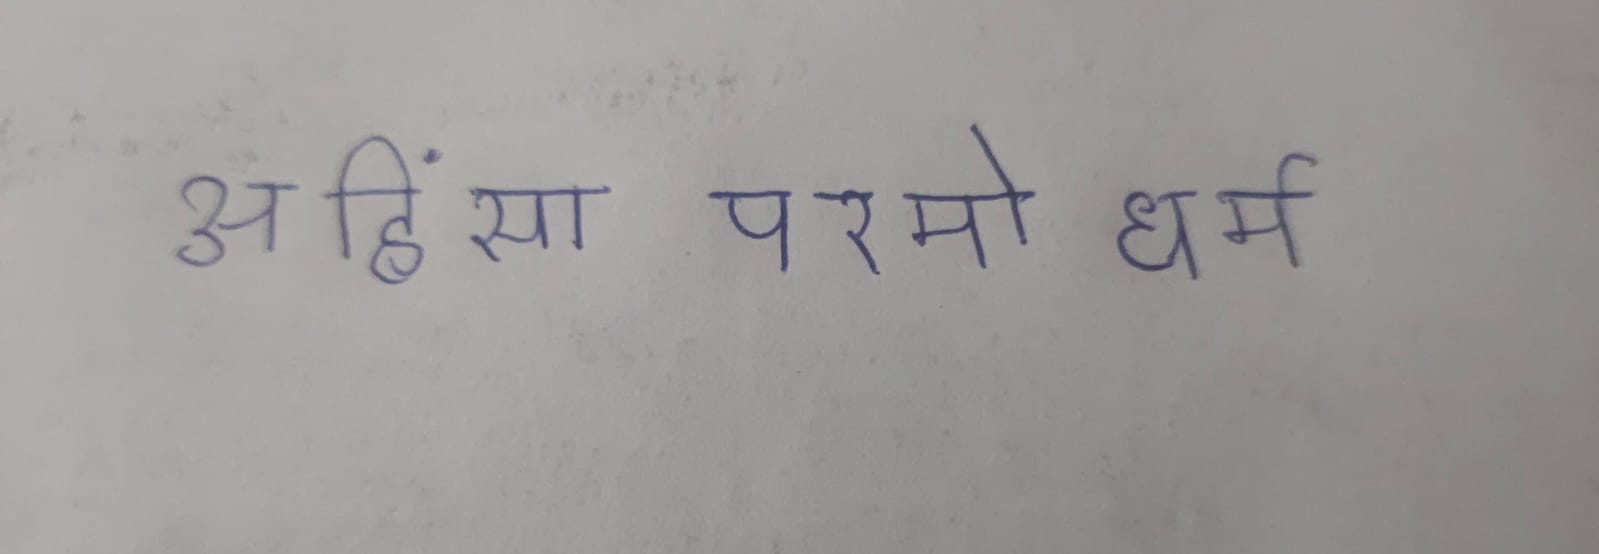 अहिंसा परमो धर्म